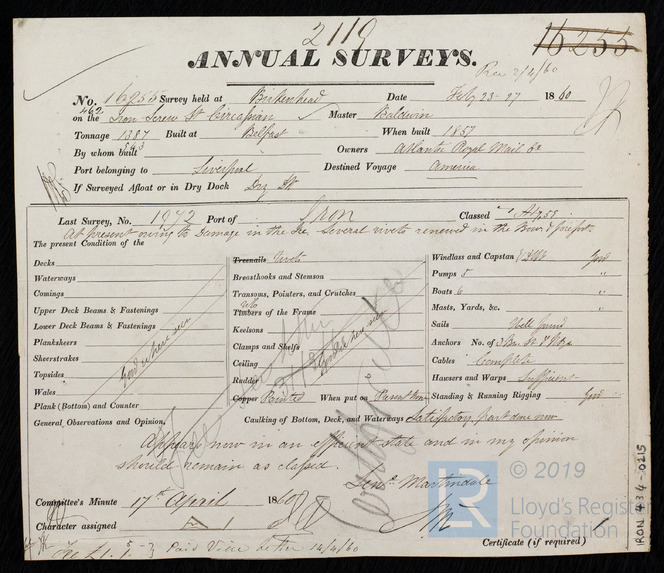 2119
16255
ANNUAL SURVEYS.
Rec 2/4/60
No. 16955 Survey held at Birkenhead Date Feby 23-27 1860
462
on the Iron Screw St Circassian Master Baldwin
Tonnage 1387 Built at Belfast When built 1857
By whom built Owners Atlantic Royal Mail Co
Port belonging to Liverpool Destined Voyage America
If Surveyed Afloat or in Dry Dock Dry
Last Survey, No. 1972 Port of Iron Classed
At present owing to Damage in the Ice, Several rivets renewed in the Bows & forefoot
The present Condition of the
Decks
Waterways
Comings
Upper Deck Beams & Fastenings
Lower Deck Beams & Fastenings
Planksheers
Sheerstrakes
Topsides
Wales
Plank (Bottom) and Counter
Good where seen
General Observations and Opinion,
Treenails Rivets
Breasthooks and Stemson
Transoms, Pointers, and Crutches
Timbers of the Frame
Keelsons
Clamps and Shelfs
Ceiling
Rudder
Good where seen
Copper Painted When put on Present time
Caulking of Bottom, Deck, and Waterways Satisfactory, part done now
Windlass and Capstan Good
Pumps 5 "
Boats 6 "
Masts, Yards, &c. "
Sails Well found
Anchors No. of 3
Cables Complete
Hawsers and Warps Sufficient
Standing & Running Rigging Good
Appears now in an efficient state and in my opinion
should remain as classed.
Martindale
Committee's Minute 17th April 1860
Character assigned
Paid Vide Letter 14/4/60
Certificate (if required)
© 2019
LR
Lloyd's Register
Foundation
IRON 434-0215